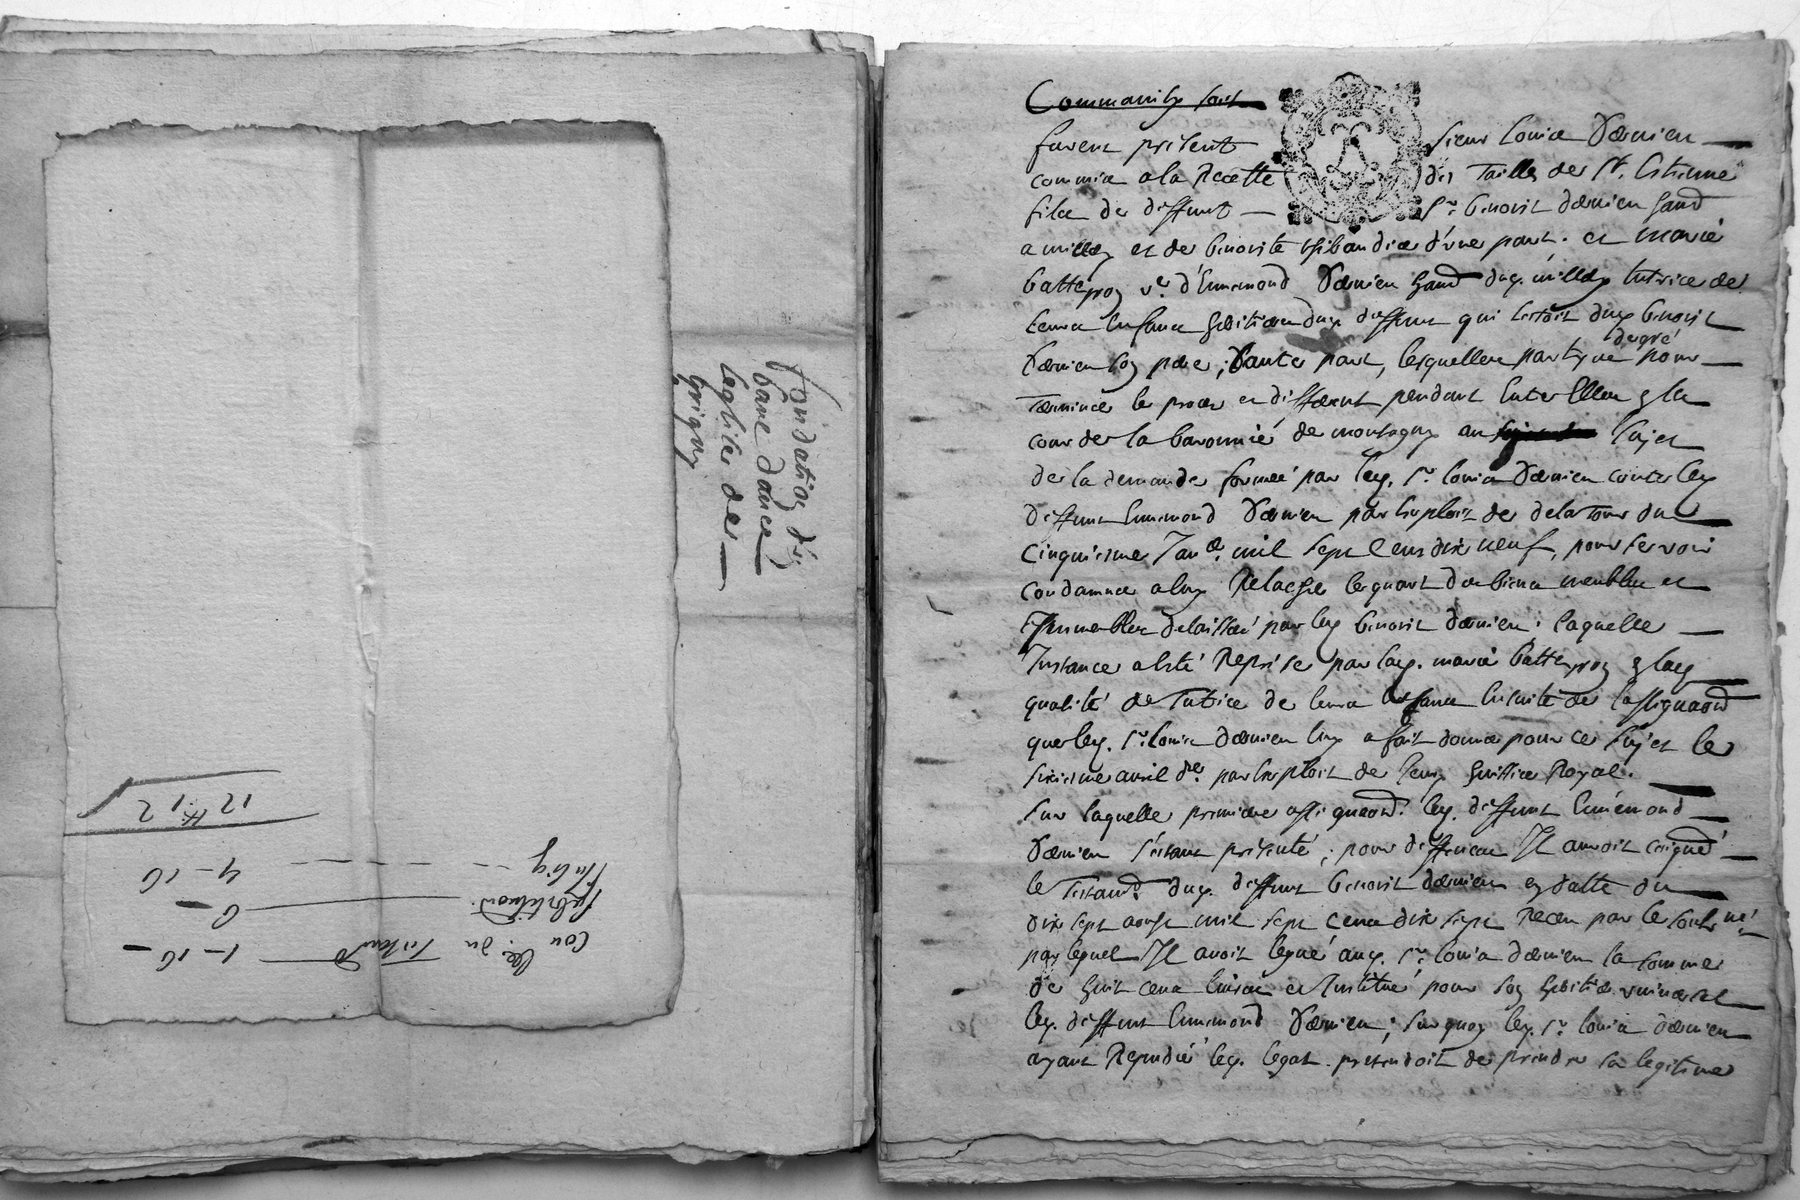 fondation dés
bancs dans
leglise de
Grigny
Con lle. du Testamt 1-16
substituon. 6
4-16
12 tt. 12
furent présent sieur Louis Dervieu
commis a la Recette des Tailles de St. Estienne
fils de deffunt Sr. benoist dervieu
a millery et de benoiste d'une part. et marié
ve. d'Ennemond Dervieu dud. millery tutrice de
leurs enfans dud. deffunt qui lestoit dud. benoist
Dervieu son pere, d'autre part, lesquelles partyes
de gré
pour
Terminer le proces et different pendant entre Elles en la
cour de la baronnié de montagny au sujet
de la demande formeé par led. Sr. louis Dervieu contre led.
deffunt Ennemond Dervieu par Exploit de delatour du
cinquiesme Janer. mil sept Cens dix neuf, pour se voir
condamner a luy Relacher le quart des biens meubles et
Immeubles delaissés par led. benoist dervieu, laquelle
Instance a été Reprise par lad. marié en lad.
qualité de Tutrice de leurs Enfans Ensuite de l'assignaon
que led. Sr. louis dervieu luy a fait donner pour ce sujet le
sixiesme avril der. par Exploit de huissier Royal.
sur laquelle premiere assignaon. led. deffunt Ennémond
Dervieu s'etant présenté, pour deffences Il auroit
le Testamt. dud. deffunt benoist dervieu en datte du
dix sept aoust mil sept cens dix sept Receu par le soubs né.
par lequel Il avoit legué aud. Sr. louis dervieu la somme
de huit cens livres et Institué pour son heritier universel
led. deffunt Ennemond Dervieu, surquoy led. Sr. louis dervieu
ayant Repudié led. legat. pretendoit de prendre sa legitime